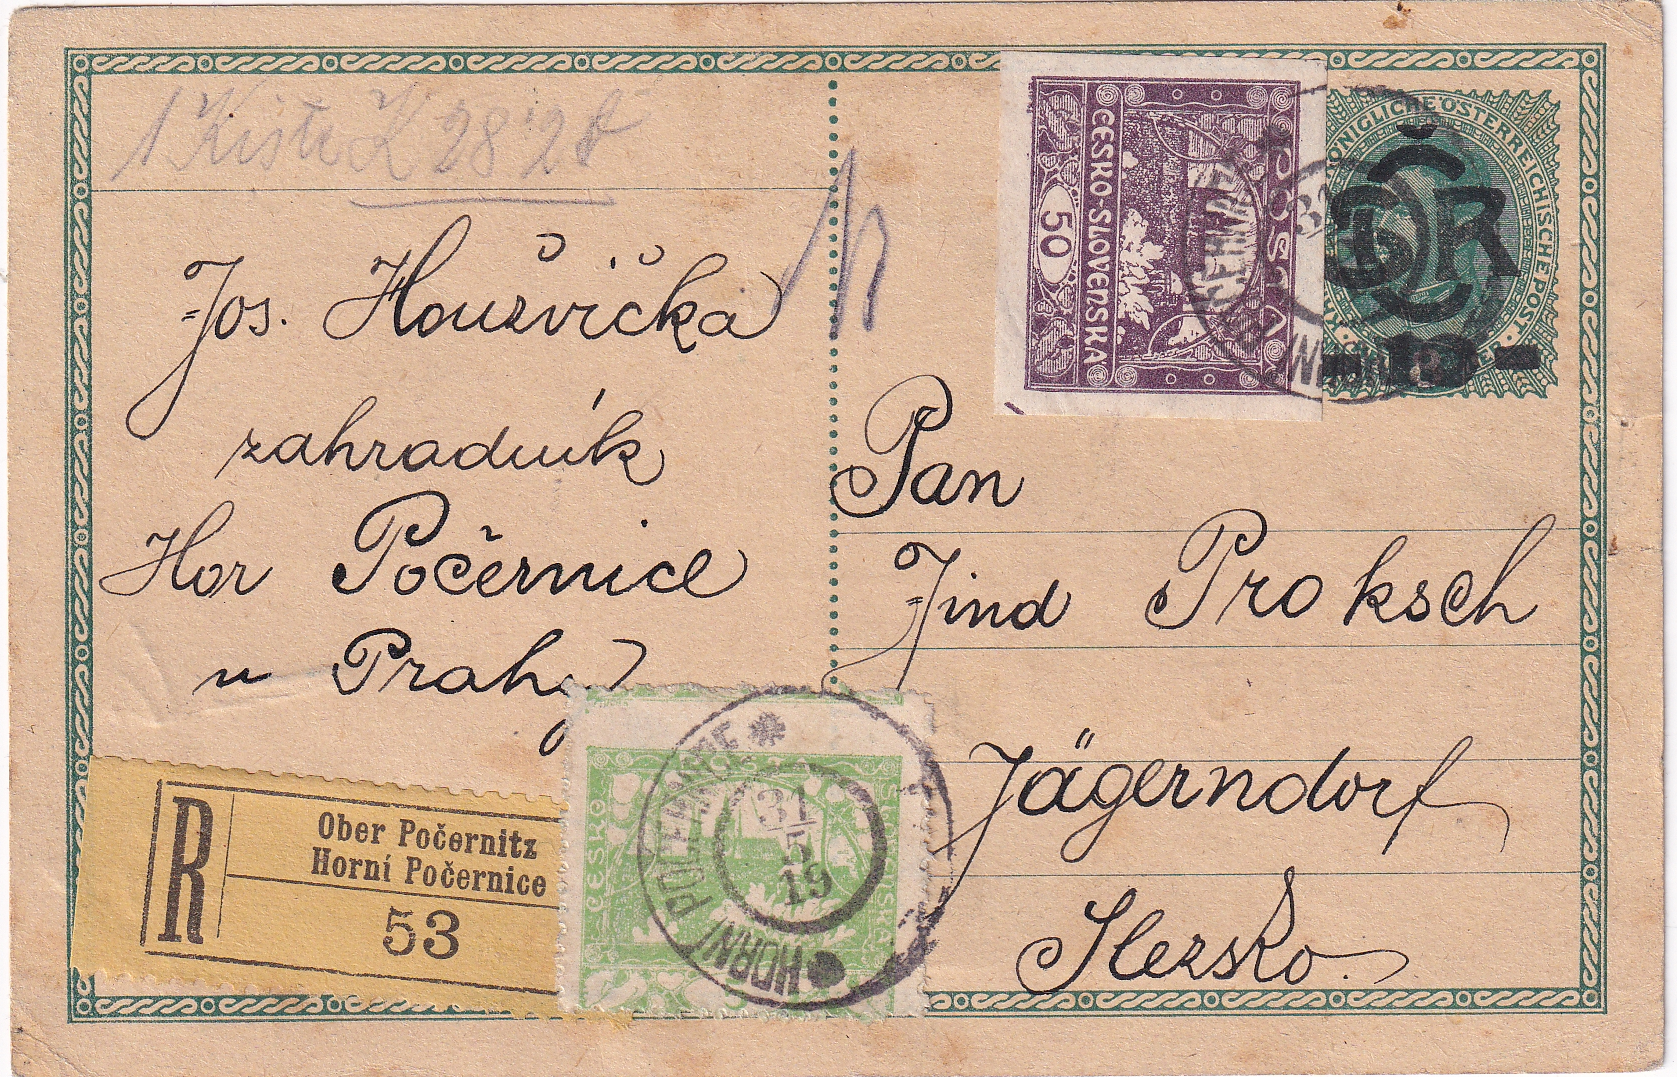 1 Kiste K 28'28
Jos. Houzvička
zahradník
Hor Počernice
u Prahy
R
Ober Počernitz
Horní Počernice
53
ČESKO-SLOVENSKÁ
POŠTA
50
KÖNIGLICHE ÖSTERREICHISCHE POST
ČSR
Pan
Jind Proksch
Jägerndorf
Slezsko.
ČESKO
SLOVENSKÁ
HORNÍ POČERNICE
31
5
19